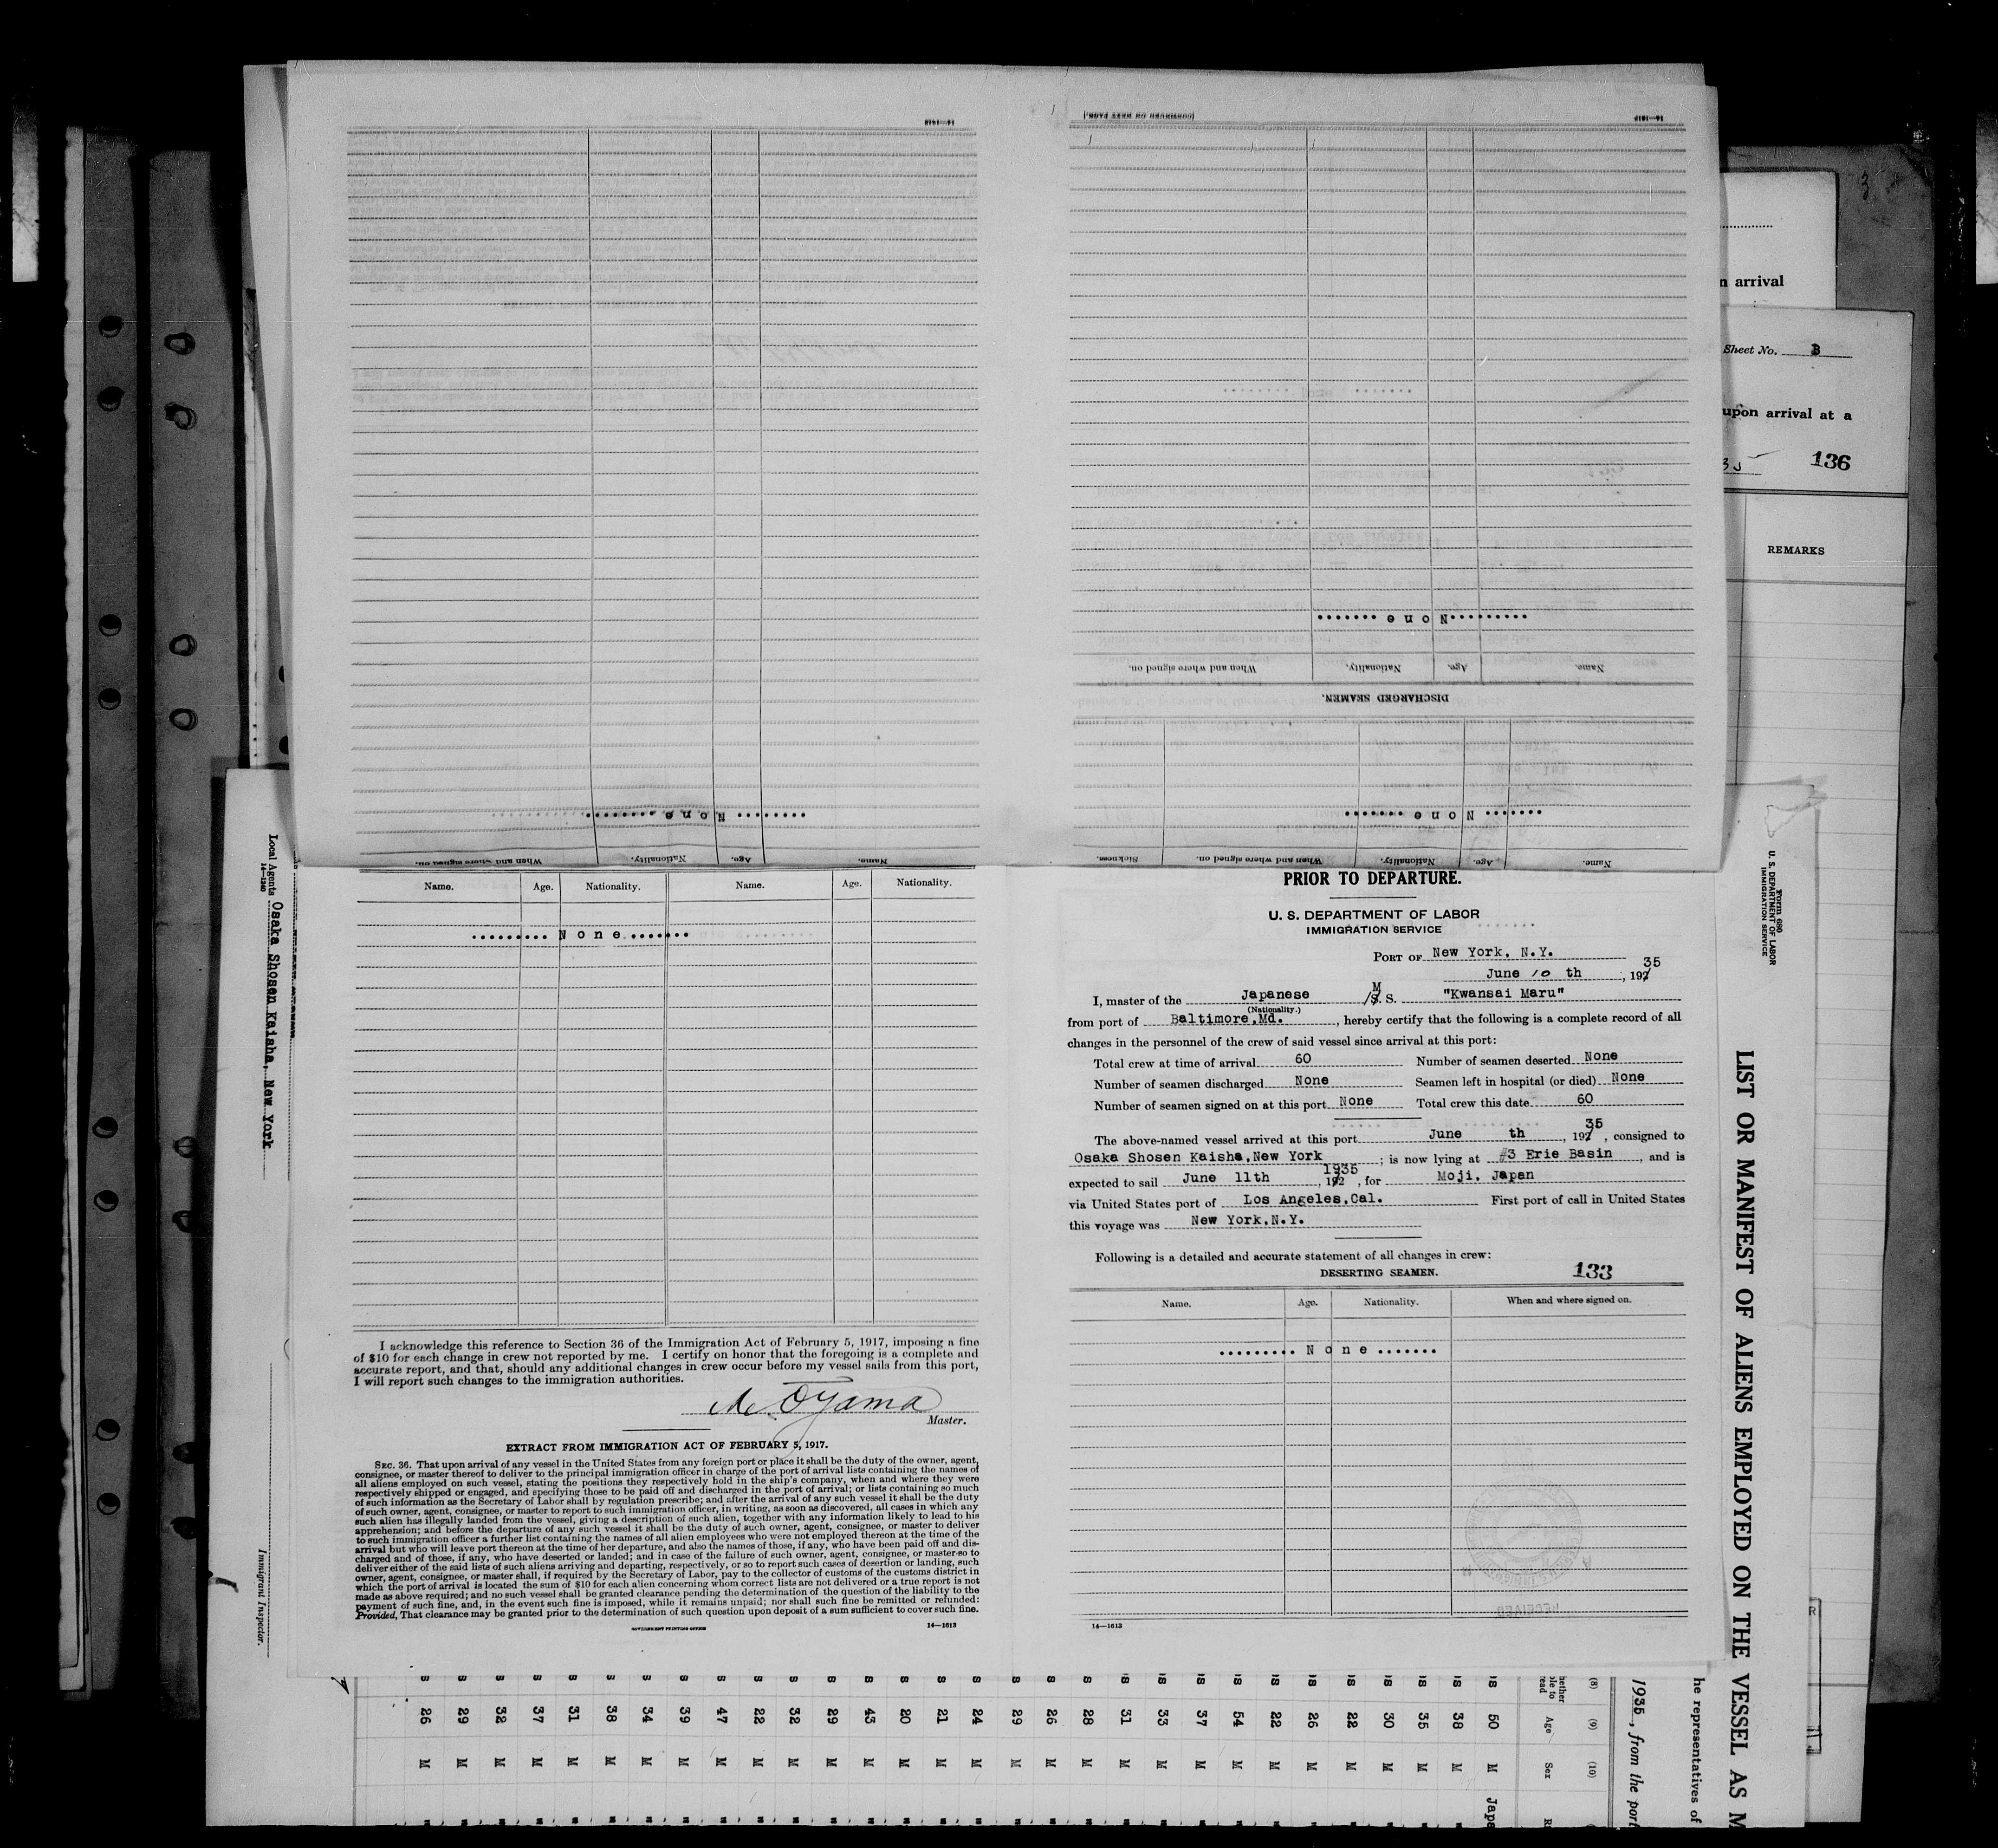 [CONTINUED ON NEXT PAGE.]
14—1613
14—1613
None
Name. Age. Nationality. When and where signed on.
DISCHARGED SEAMEN.
None
Name. Age. Nationality. When and where signed on. Sickness.
None
Name. Age. Nationality. When and where signed on.
n arrival
Sheet No. B
upon arrival at a
35 136
REMARKS
Name. Age. Nationality. Name. Age. Nationality.
......... None .......
I acknowledge this reference to Section 36 of the Immigration Act of February 5, 1917, imposing a fine
of $10 for each change in crew not reported by me. I certify on honor that the foregoing is a complete and
accurate report, and that, should any additional changes in crew occur before my vessel sails from this port,
I will report such changes to the immigration authorities.
M. Oyama
Master.
EXTRACT FROM IMMIGRATION ACT OF FEBRUARY 5, 1917.
SEC. 36. That upon arrival of any vessel in the United States from any foreign port or place it shall be the duty of the owner, agent,
consignee, or master thereof to deliver to the principal immigration officer in charge of the port of arrival lists containing the names of
all aliens employed on such vessel, stating the positions they respectively hold in the ship's company, when and where they were
respectively shipped or engaged, and specifying those to be paid off and discharged in the port of arrival; or lists containing so much
of such information as the Secretary of Labor shall by regulation prescribe; and after the arrival of any such vessel it shall be the duty
of such owner, agent, consignee, or master to report to such immigration officer, in writing, as soon as discovered, all cases in which any
such alien has illegally landed from the vessel, giving a description of such alien, together with any information likely to lead to his
apprehension; and before the departure of any such vessel it shall be the duty of such owner, agent, consignee, or master to deliver
to such immigration officer a further list containing the names of all alien employees who were not employed thereon at the time of the
arrival but who will leave port thereon at the time of her departure, and also the names of those, if any, who have been paid off and dis-
charged and of those, if any, who have deserted or landed; and in case of the failure of such owner, agent, consignee, or master so to
deliver either of the said lists of such aliens arriving and departing, respectively, or so to report such cases of desertion or landing, such
owner, agent, consignee, or master shall, if required by the Secretary of Labor, pay to the collector of customs of the customs district in
which the port of arrival is located the sum of $10 for each alien concerning whom correct lists are not delivered or a true report is not
made as above required; and no such vessel shall be granted clearance pending the determination of the question of the liability to the
payment of such fine, and, in the event such fine is imposed, while it remains unpaid; nor shall such fine be remitted or refunded:
Provided, That clearance may be granted prior to the determination of such question upon deposit of a sum sufficient to cover such fine.
GOVERNMENT PRINTING OFFICE 14—1613
PRIOR TO DEPARTURE.
U. S. DEPARTMENT OF LABOR
IMMIGRATION SERVICE
PORT OF New York, N.Y.
June 10 th, 192 35
I, master of the Japanese M/S. S. "Kwansai Maru"
(Nationality.)
from port of Baltimore,Md., hereby certify that the following is a complete record of all
changes in the personnel of the crew of said vessel since arrival at this port:
Total crew at time of arrival 60 Number of seamen deserted None
Number of seamen discharged None Seamen left in hospital (or died) None
Number of seamen signed on at this port None Total crew this date 60
The above-named vessel arrived at this port June th, 192 35, consigned to
Osaka Shosen Kaisha,New York; is now lying at #3 Erie Basin, and is
expected to sail June 11th, 192 1935, for Moji, Japan
via United States port of Los Angeles,Cal. First port of call in United States
this voyage was New York,N.Y.
Following is a detailed and accurate statement of all changes in crew:
DESERTING SEAMEN. 133
Name. Age. Nationality. When and where signed on.
......... None .......
RECEIVED
14—1613
Local Agents Osaka Shosen Kaisha, New York
14—1240
Immigrant Inspector.
Form 680
U. S. DEPARTMENT OF LABOR
IMMIGRATION SERVICE
LIST OR MANIFEST OF ALIENS EMPLOYED ON THE VESSEL AS M
he representatives of
1935, from the port
(8) (9) (10)
Age Sex
50 M Japa
38 M
35 M
30 M
22 M
26 M
22 M
54 M
37 M
33 M
31 M
28 M
26 M
29 M
24 M
21 M
20 M
43 M
29 M
32 M
22 M
47 M
39 M
34 M
38 M
31 M
37 M
32 M
29 M
26 M